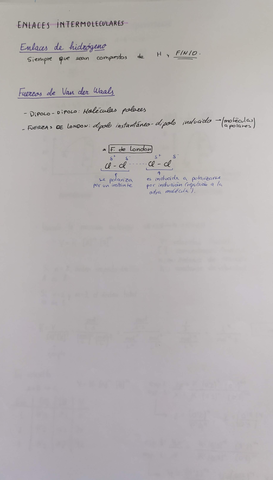 ENLACES INTERMOLECULARES
Enlaces de hidrógeno
Siempre que sean compuestos de H y FINIO.
Fuerzas de Van der Waals
- DIPOLO-DIPOLO: Moléculas polares
- FUERZAS DE LONDON: dipolo instantáneo-dipolo inducido → (moléculas apolares)
* F de London
δ+ δ- δ+ δ-
Cl - Cl ...... Cl - Cl
se polariza por un instante
es inducida a polarizarse por inducción (igualito a la otra molécula)